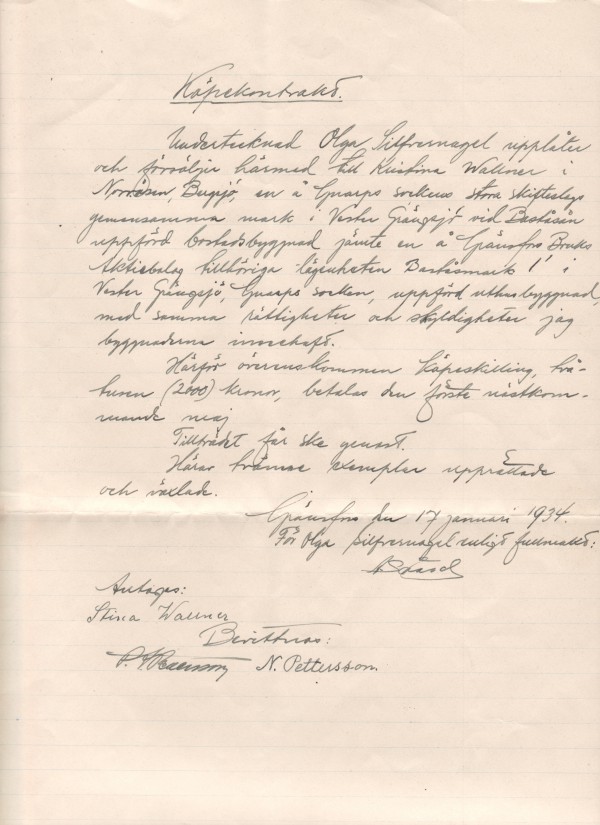 Köpekontrakt.
Undertecknad Olga Silfvernagel upplåter
och försäljer härmed till Kristina Wallner i
Norråsen, Bergsjö, en å Gnarps sockens stora skifteslags
gemensamma mark i Vester Grängsjö vid Baståsån
uppförd bostadsbyggnad jämte en å Gränsfors Bruks
Aktiebolag tillhöriga lägenheten Baståsmark 1' i
Vester Grängsjö, Gnarps socken, uppförd uthusbyggnad,
med samma rättigheter och skyldigheter jag
byggnaderna innehaft.
Härför överenskommen köpeskilling, två-
tusen (2000) kronor, betalas den förste nästkom-
mande maj
Tillträdet får ske genast.
Härav tvänne exemplar upprättade
och växlade.
Gränsfors den 17 januari 1934.
För Olga Silfvernagel enligt fullmakt:
Antages:
Stina Wallner
Bevittnas:
N. Pettersson